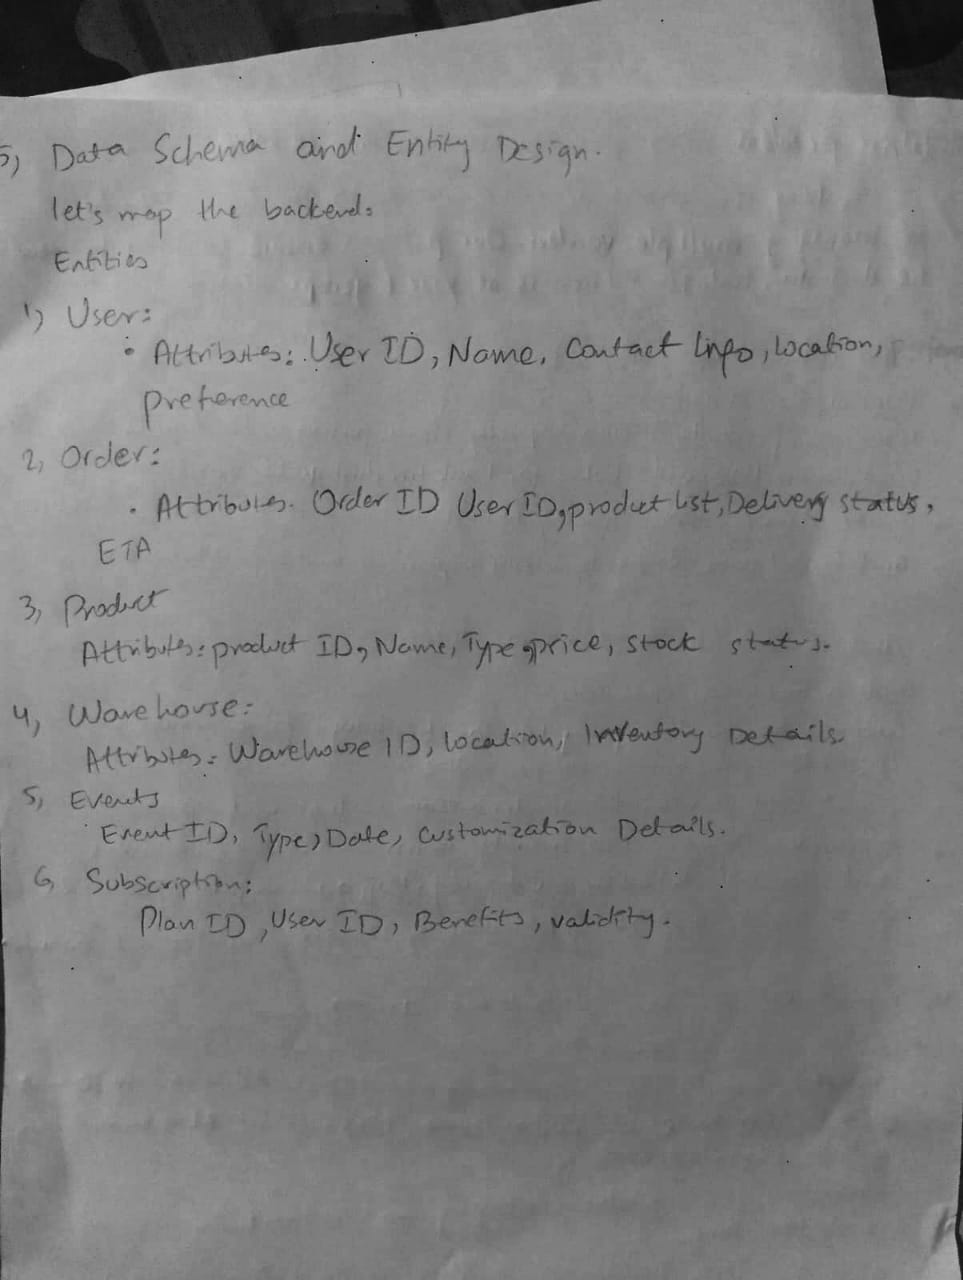 5) Data Schema and Entity Design.
let's map the backend.
Entities
1) User:
• Attributes: User ID, Name, Contact Info, location,
preference
2, Order:
• Attributes. Order ID User ID, product list, Delivery status,
ETA
3, Product
Attributes: product ID, Name, Type, price, stock status.
4, Warehouse:
Attributes: Warehouse ID, location, Inventory Details
5, Events
Event ID, Type, Date, Customization Details.
6, Subscription:
Plan ID, User ID, Benefits, validity.